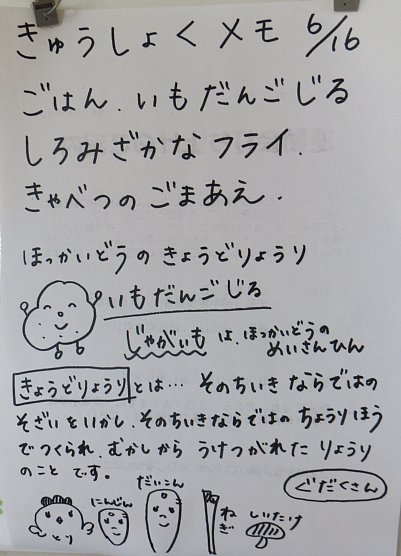 きゅうしょくメモ 6/16
ごはん.いもだんごじる
しろみざかなフライ.
きゃべつのごまあえ.
ほっかいどうのきょうどりょうり
いもだんごじる
じゃがいも は、ほっかいどうの
めいさんひん
きょうどりょうり とは… そのちいきならではの
そざいをいかし、そのちいきならではのちょうりほう
でつくられ、むかしから うけつがれた りょうり
のこと です。
ぐだくさん
とり にんじん だいこん ねぎ しいたけ